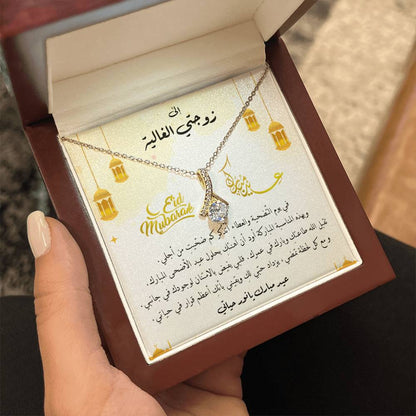 الى
زوجتي الغالية
Eid
Mubarak
عيد مبارك
في يوم التضحية والعطاء، كم ضحيت من أجلي.
وبهذه المناسبة المباركة أود أن أهنئك بحلول عيد الأضحى المبارك.
تقبل الله طاعتك وبارك في عمرك. قلبي ينبض بالامتنان لوجودك في جانبي.
و مع كل لحظة تمضي، يزداد حبي لك ويقيني بأنك أعظم قرار في حياتي.
عيد مبارك يا نور حياتي